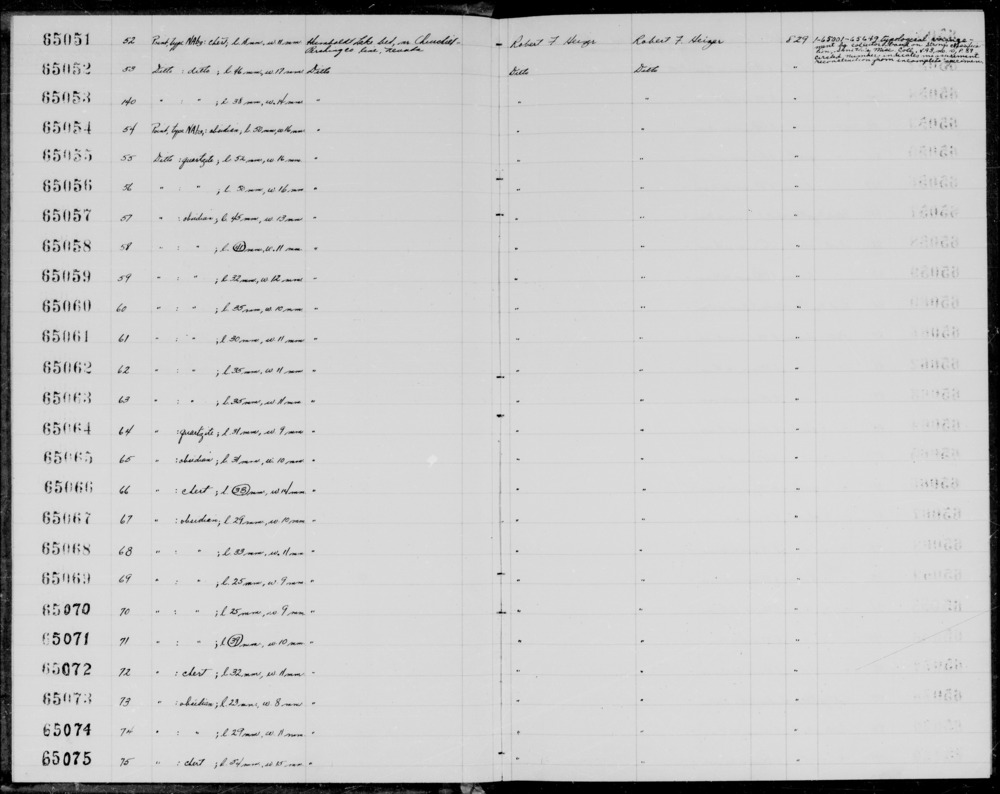 65051 52 Point, type NAb2: chert, l. mm, w. 11 mm Humboldt Lake bed, nr Churchill- Robert F. Heizer Robert F. Heizer 529 1-65001-65649 typological arrange-
Pershing co line, Nevada ment by collector based on Strong
Misc. Coll., circled number indicates measurement
reconstruction from incomplete specimen
65052 53 Ditto : ditto; l. 46 mm, w. 17 mm Ditto Ditto Ditto
65053 140 " : " ; l. 38 mm, w. 14 mm " " " "
65054 54 Point, type : obsidian; l. 50 mm, w 16 mm " " " "
65055 55 Ditto : quartzite; l. 52 mm, w. 16 mm " " " "
65056 56 " : " ; l. 50 mm, w. 16 mm " " " "
65057 57 " : obsidian; l. 45 mm, w 13 mm " " " "
65058 58 " : " ; l. mm, w. 11 mm " " " "
65059 59 " : " ; l. 32 mm, w 12 mm " " " "
65060 60 " : " ; l. 35 mm, w. 10 mm " " " "
65061 61 " : " ; l. 30 mm, w. 11 mm " " " "
65062 62 " : " ; l. 35 mm, w 11 mm " " " "
65063 63 " : " ; l. 35 mm, w 11 mm " " " "
65064 64 " : quartzite; l. 31 mm, w. 9 mm " " " "
65065 65 " : obsidian; l. 31 mm, w. 10 mm " " " "
65066 66 " : chert ; l. 38 mm, w 14 mm " " " "
65067 67 " : obsidian; l. 29 mm, w 10 mm " " " "
65068 68 " : " ; l. 33 mm, w. 11 mm " " " "
65069 69 " : " ; l. 25 mm, w 9 mm " " " "
65070 70 " : " ; l. 25 mm, w 9 mm " " " "
65071 71 " : " ; l. 31 mm, w. 10 mm " " " "
65072 72 " : chert ; l. 32 mm, w. 11 mm " " " "
65073 73 " : obsidian; l. 23 mm, w 8 mm " " " "
65074 74 " : " ; l. 29 mm, w. 11 mm " " " "
65075 75 " : chert ; l. 54 mm, w 15 mm " " " "